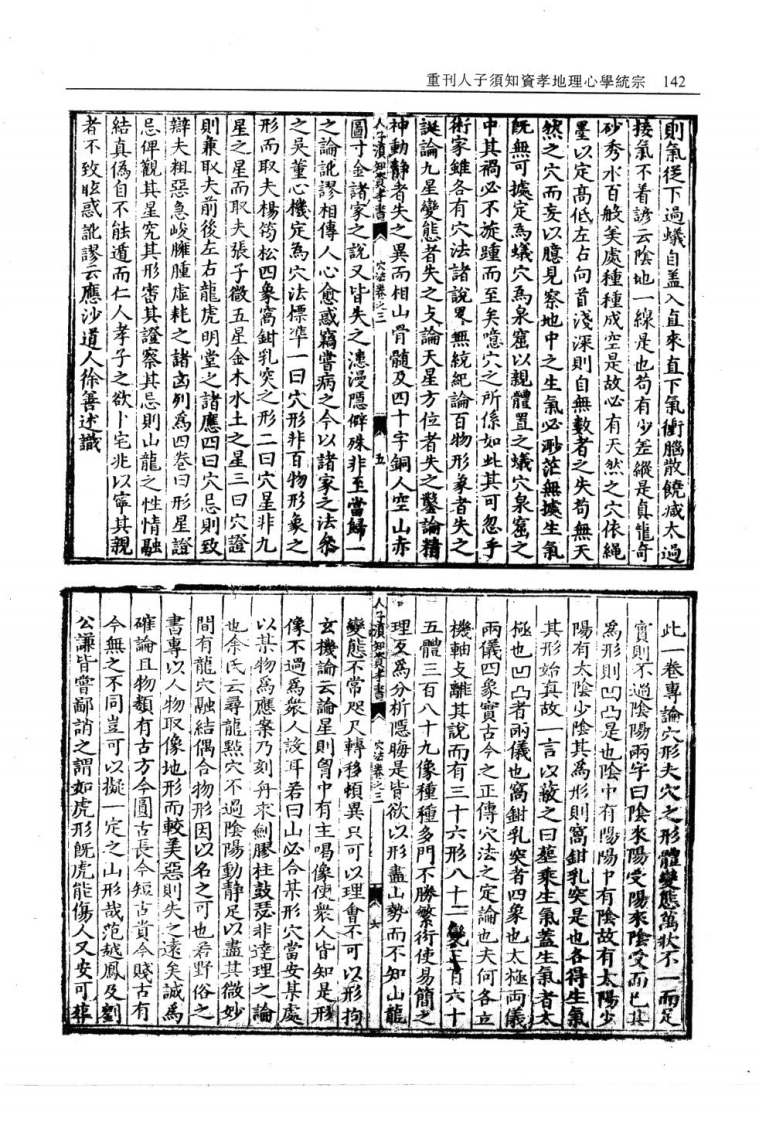 重刊人子須知資孝地理心學統宗 142
則氣從下過蟻自蓋入直來直下氣衝腦散饒减太過
接氣不着諺云陰地一線是也苟有少差縱是真龍奇
砂秀水百般美處種種成空是故必有天然之穴依繩
墨以定高低左右向首淺深則自無數者之失苟無天
然之穴而妄以臆見察地中之生氣必渺茫無據生氣
既無可據定爲蟻穴爲泉窟以親體置之蟻穴泉窟之
中其禍必不旋踵而至矣噫穴之所係如此其可忽乎
術家雖各有穴法諸說畧無統紀論百物形象者失之
誕論九星變態者失之支論天星方位者失之鑿論精
神動靜者失之異而相山骨髓及四十字銅人空山赤
人子須知資孝書 穴法卷之三 五
圖寸金諸家之說又皆失之漶漫隱僻殊非至當歸一
之論訛謬相傳人心愈惑竊嘗病之今以諸家之法叅
之吴董心機定爲穴法標準一曰穴形非百物形象之
形而取夫楊筠松四象窩鉗乳突之形二曰穴星非九
星之星而取夫張子微五星金木水土之星三曰穴證
則兼取夫前後左右龍虎明堂之諸應四曰穴忌則致
辯夫粗惡急峻臃腫虛耗之諸凶列爲四卷曰形星證
忌俾觀其星究其形審其證察其忌則山龍之性情融
結真偽自不能遁而仁人孝子之欲卜宅兆以寧其親
者不致眩惑訛謬云應沙道人徐善述識
此一卷專論穴形夫穴之形體變態萬狀不一而足
實則不過陰陽兩字曰陰來陽受陽來陰受而已其
爲形則凹凸是也陰中有陽陽中有陰故有太陽少
陽有太陰少陰其爲形則窩鉗乳突是也各得生氣
其形始真故一言以蔽之曰塟乘生氣蓋生氣者太
極也凹凸者兩儀也窩鉗乳突者四象也太極兩儀
兩儀四象實古今之正傳穴法之定論也夫何各立
機軸支離其說而有三十六形八十二變三百六十
五體三百八十九像種種多門不勝繁衍使易簡之
理反爲分析隱晦是皆欲以形盡山勢而不知山龍
人子須知資孝書 穴法卷之三 六
變態不常咫尺轉移頓異只可以理會不可以形拘
玄機論云論星則胷中有主喝像使衆人皆知是形
像不過爲衆人設耳若曰山必合某形穴當安某處
以某物爲應案乃刻舟求劍膠柱鼓瑟非達理之論
也余氏云尋龍點穴不過陰陽動靜足以盡其微妙
間有龍穴融結偶合物形因以名之可也若野俗之
書專以人物取像地形而較美惡則失之遠矣誠爲
確論且物類有古方今圓古長今短古貴今賤古有
今無之不同豈可以擬一定之山形哉范越鳳及劉
公謙皆嘗鄙誚之謂如虎形既虎能傷人又安可塟